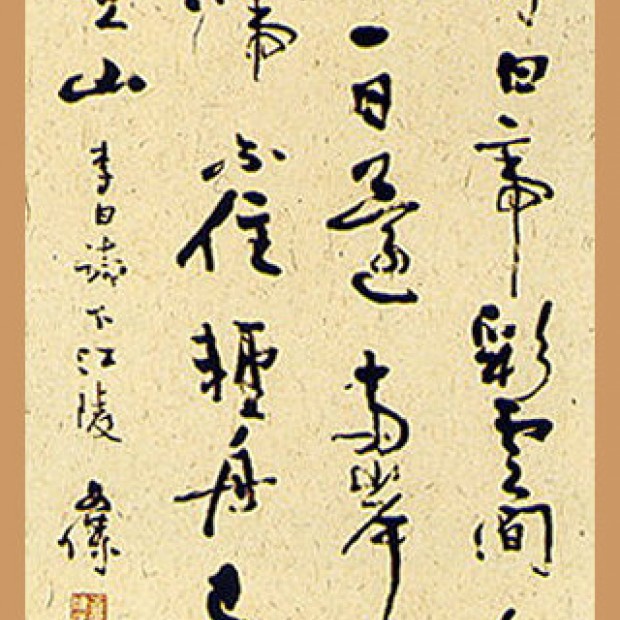 白帝彩雲間
一日還兩岸
啼不住輕舟已
山
李白詩下江陵